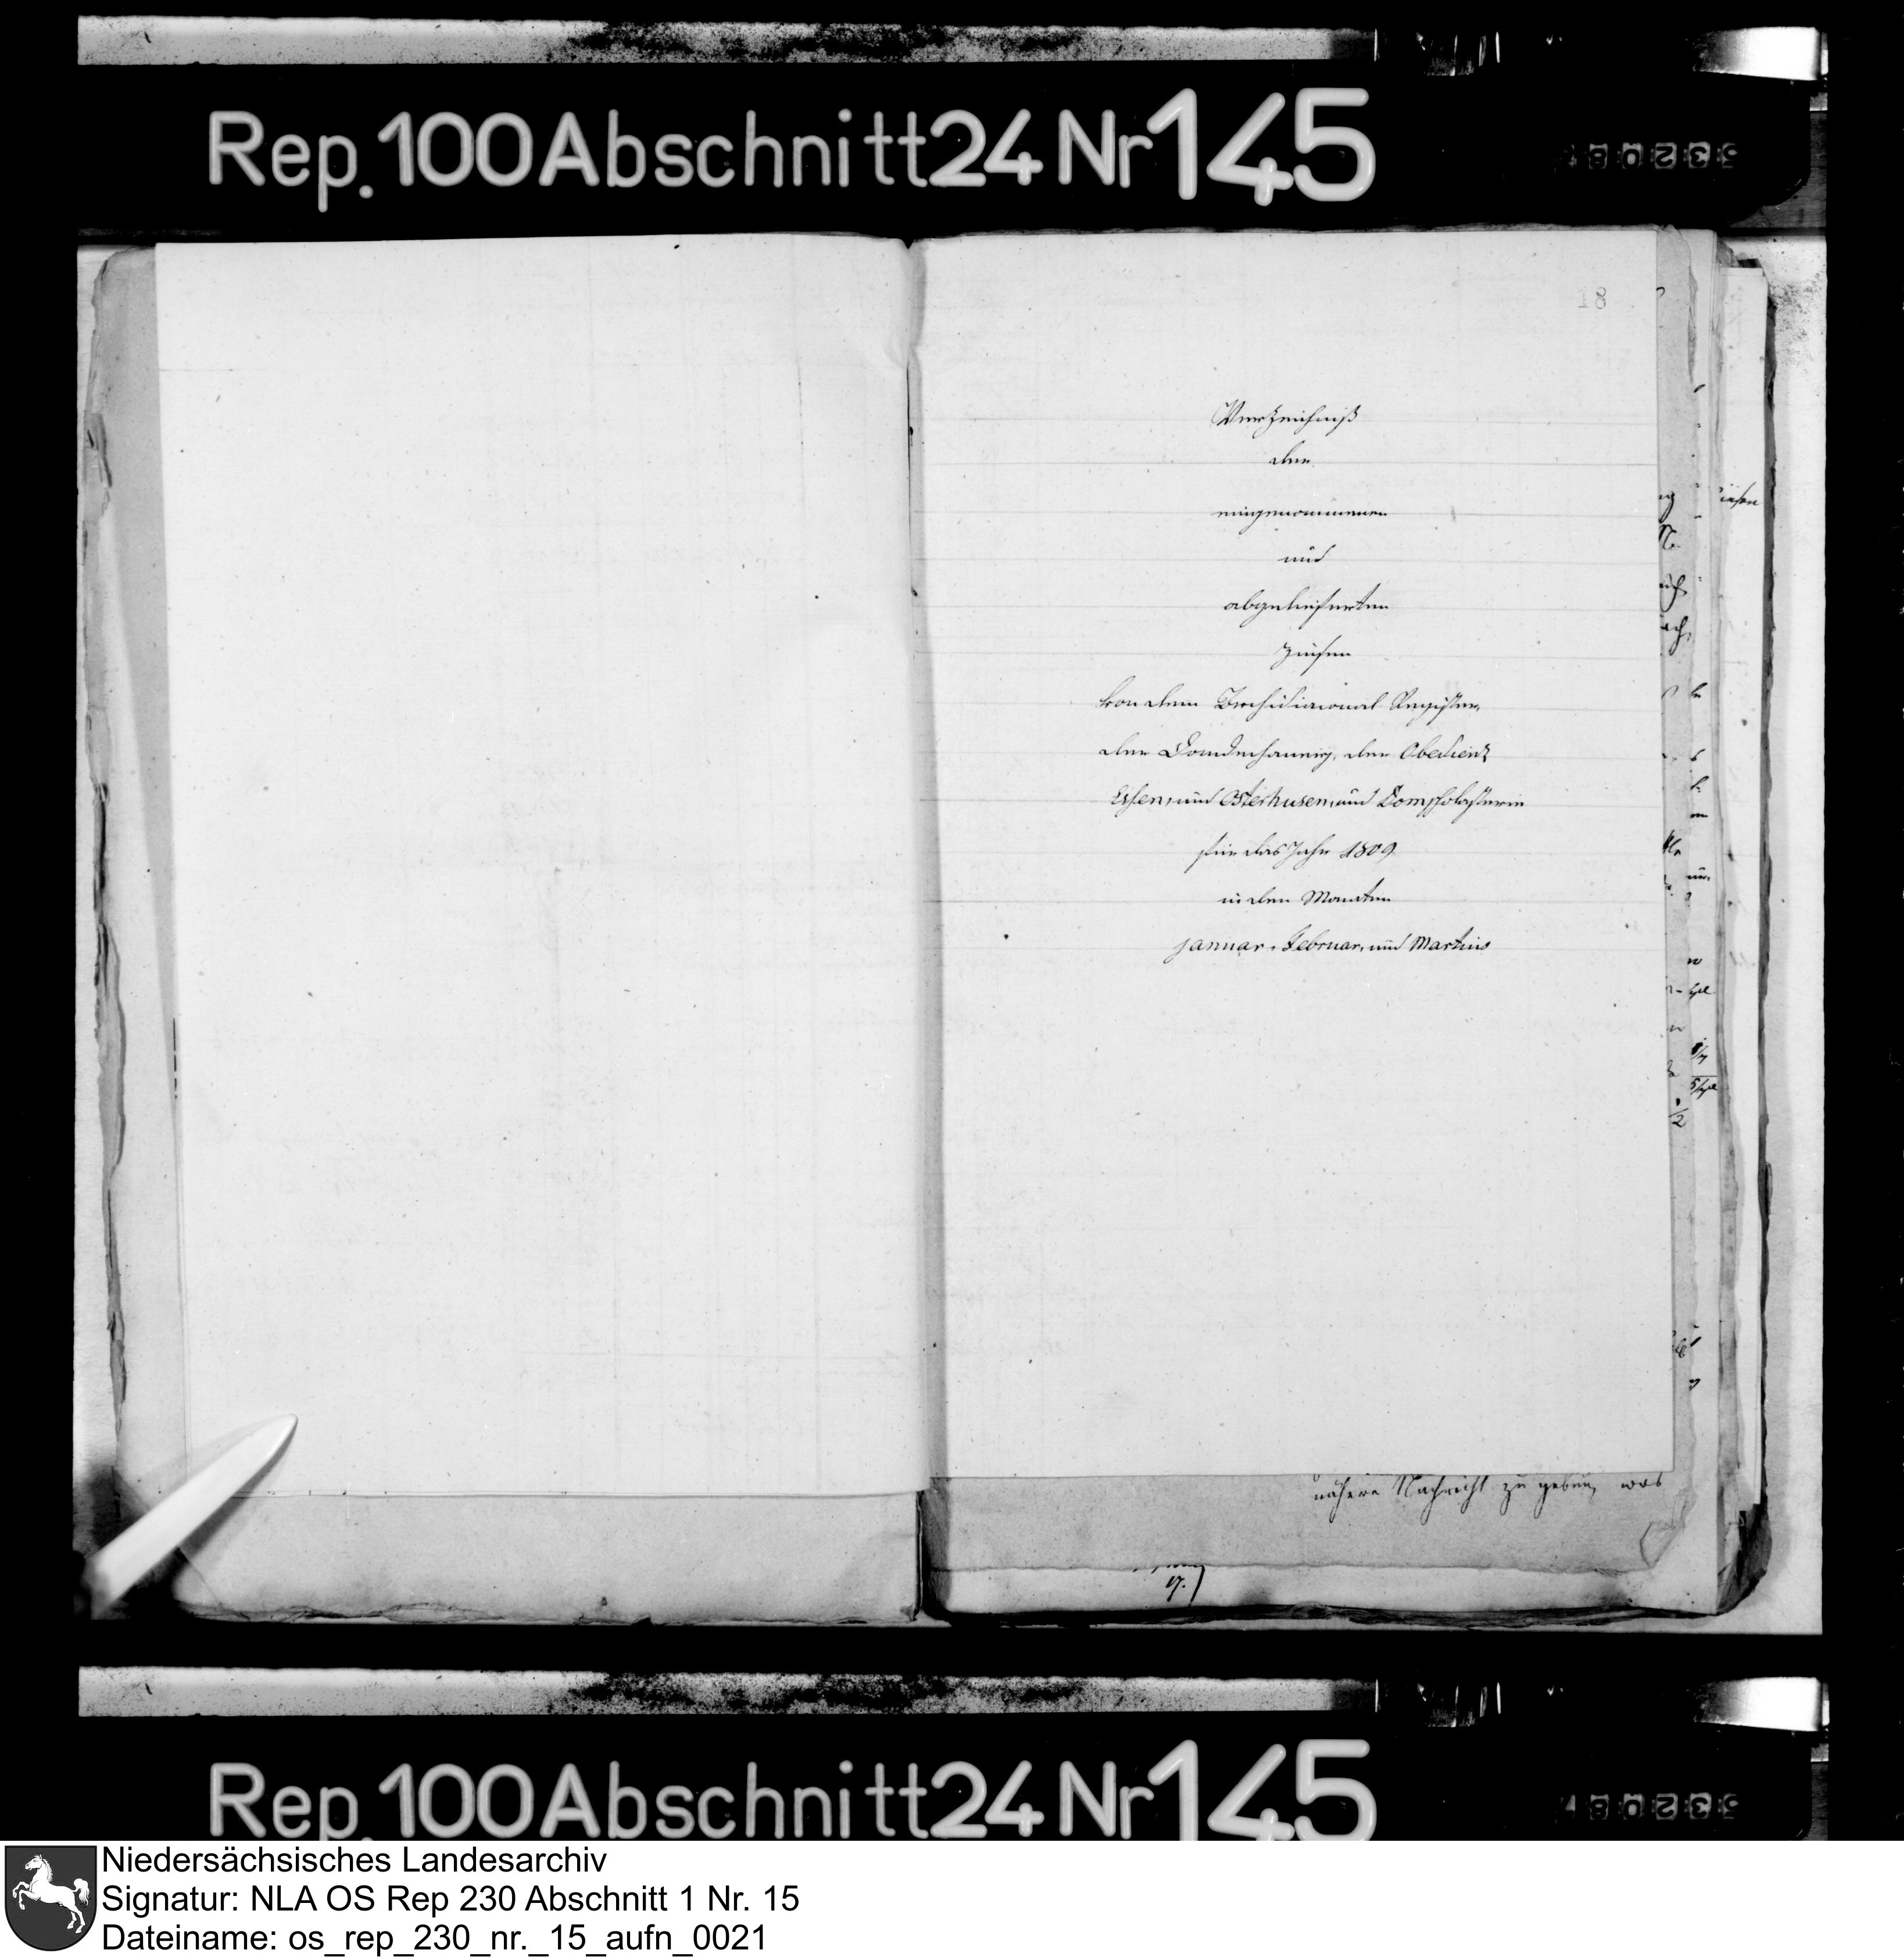 Rep. 100 Abschnitt 24 Nr 145
18
Verzeichniß
der
eingenommenen
und
abgelieferten
Zinsen
von dem Register,
der Domdechaney, der Obedienz
Essen, und Osterhusen, und Domscholasterie
für das Jahr 1809
in den Monaten
Januar, Februar, und Martius
nähere Nachricht zu geben, was
17.
Rep. 100 Abschnitt 24 Nr 145
Niedersächsisches Landesarchiv
Signatur: NLA OS Rep 230 Abschnitt 1 Nr. 15
Dateiname: os_rep_230_nr._15_aufn_0021